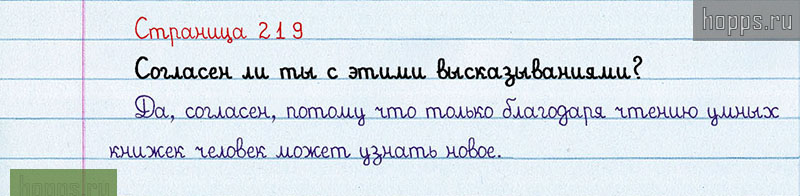 hopps.ru
Страница 219
Согласен ли ты с этими высказываниями?
Да, согласен, потому что только благодаря чтению умных
книжек человек может узнать новое.
hopps.ru